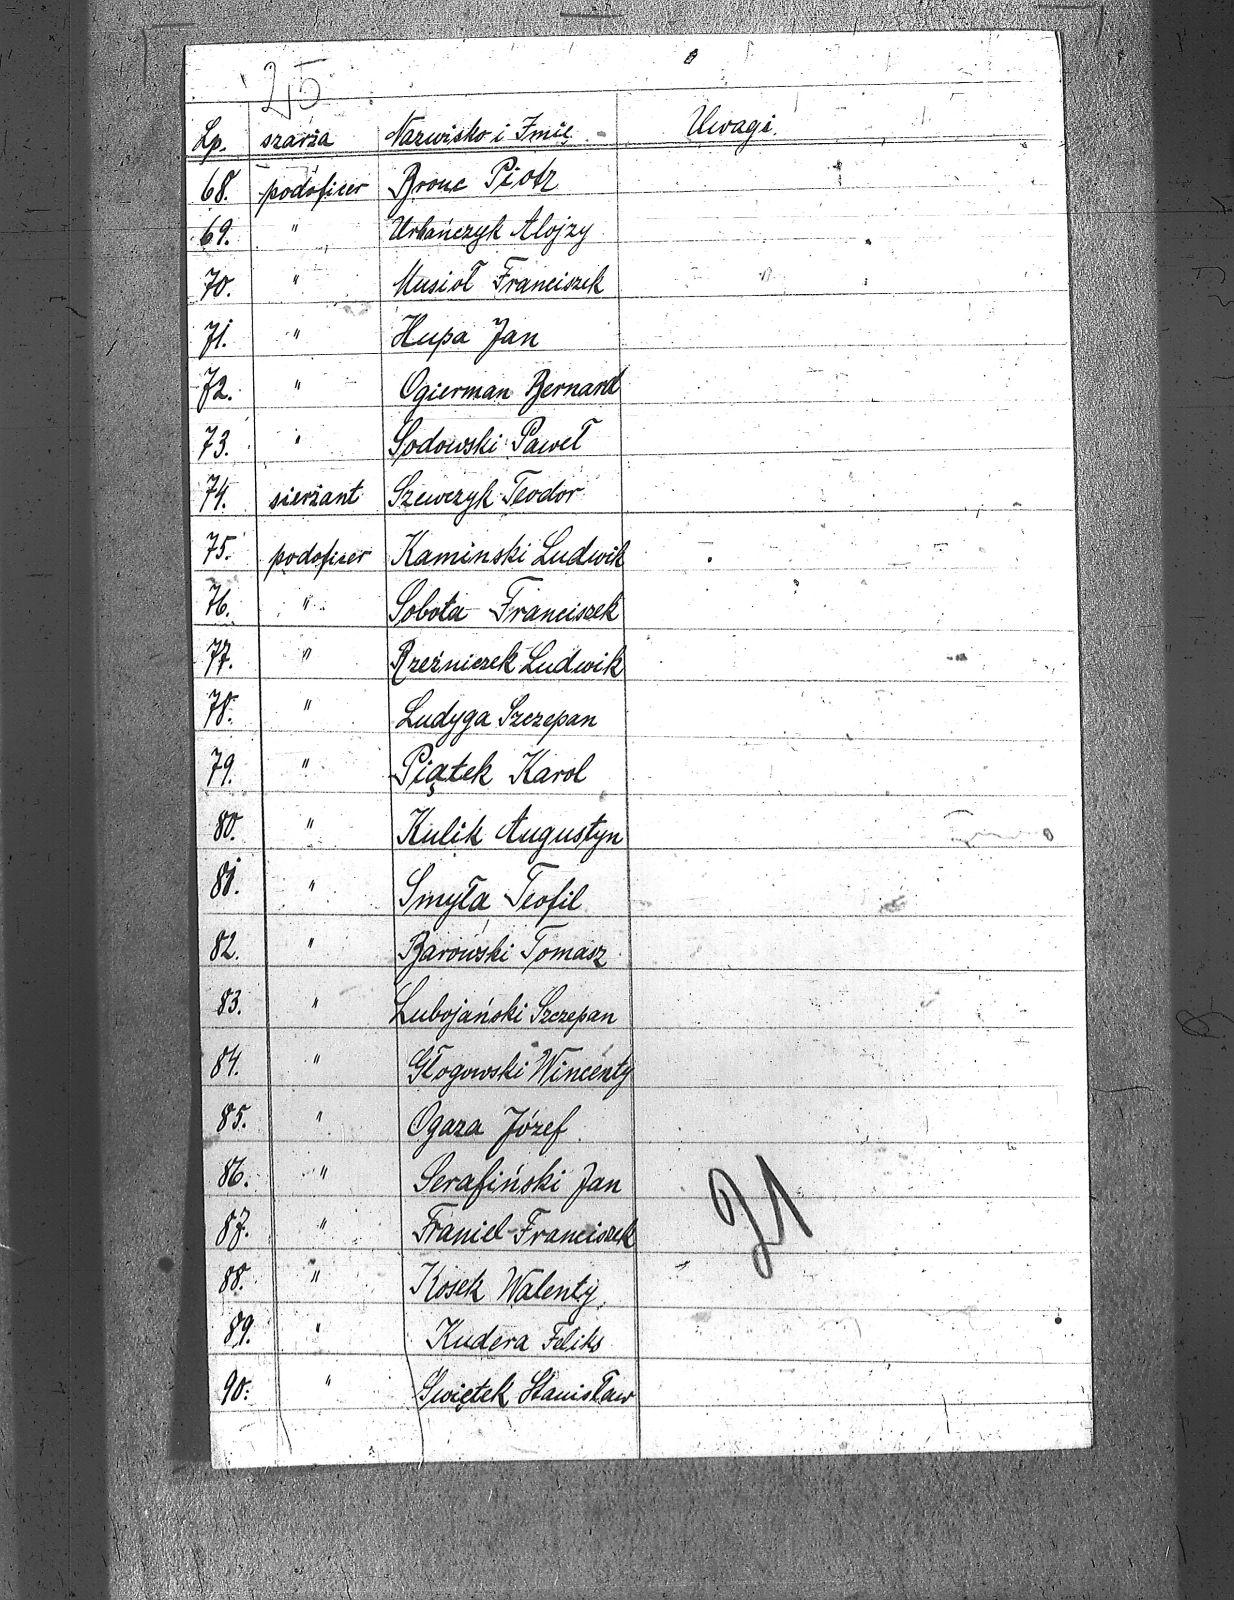 25
Lp. szarża Nazwisko i Imię Uwagi.
68. podoficer Bronc Piotr
69. " Urbańczyk Alojzy
70. " Musioł Franciszek
71. " Hupa Jan
72. " Ogierman Bernard
73. " Sodowski Paweł
74. sierżant Szewczyk Teodor
75. podoficer Kaminski Ludwik
76. " Sobota Franciszek
77. " Rzeźniczek Ludwik
78. " Ludyga Szczepan
79. " Piątek Karol
80. " Kulik Augustyn
81. " Smyła Teofil
82. " Barowski Tomasz
83. " Lubojański Szczepan
84. " Głogowski Wincenty
85. " Ogaza Józef
86. " Serafiński Jan
87. " Franiel Franciszek
88. " Kosek Walenty
89. " Kudera Feliks
90. " Świętek Stanisław
21